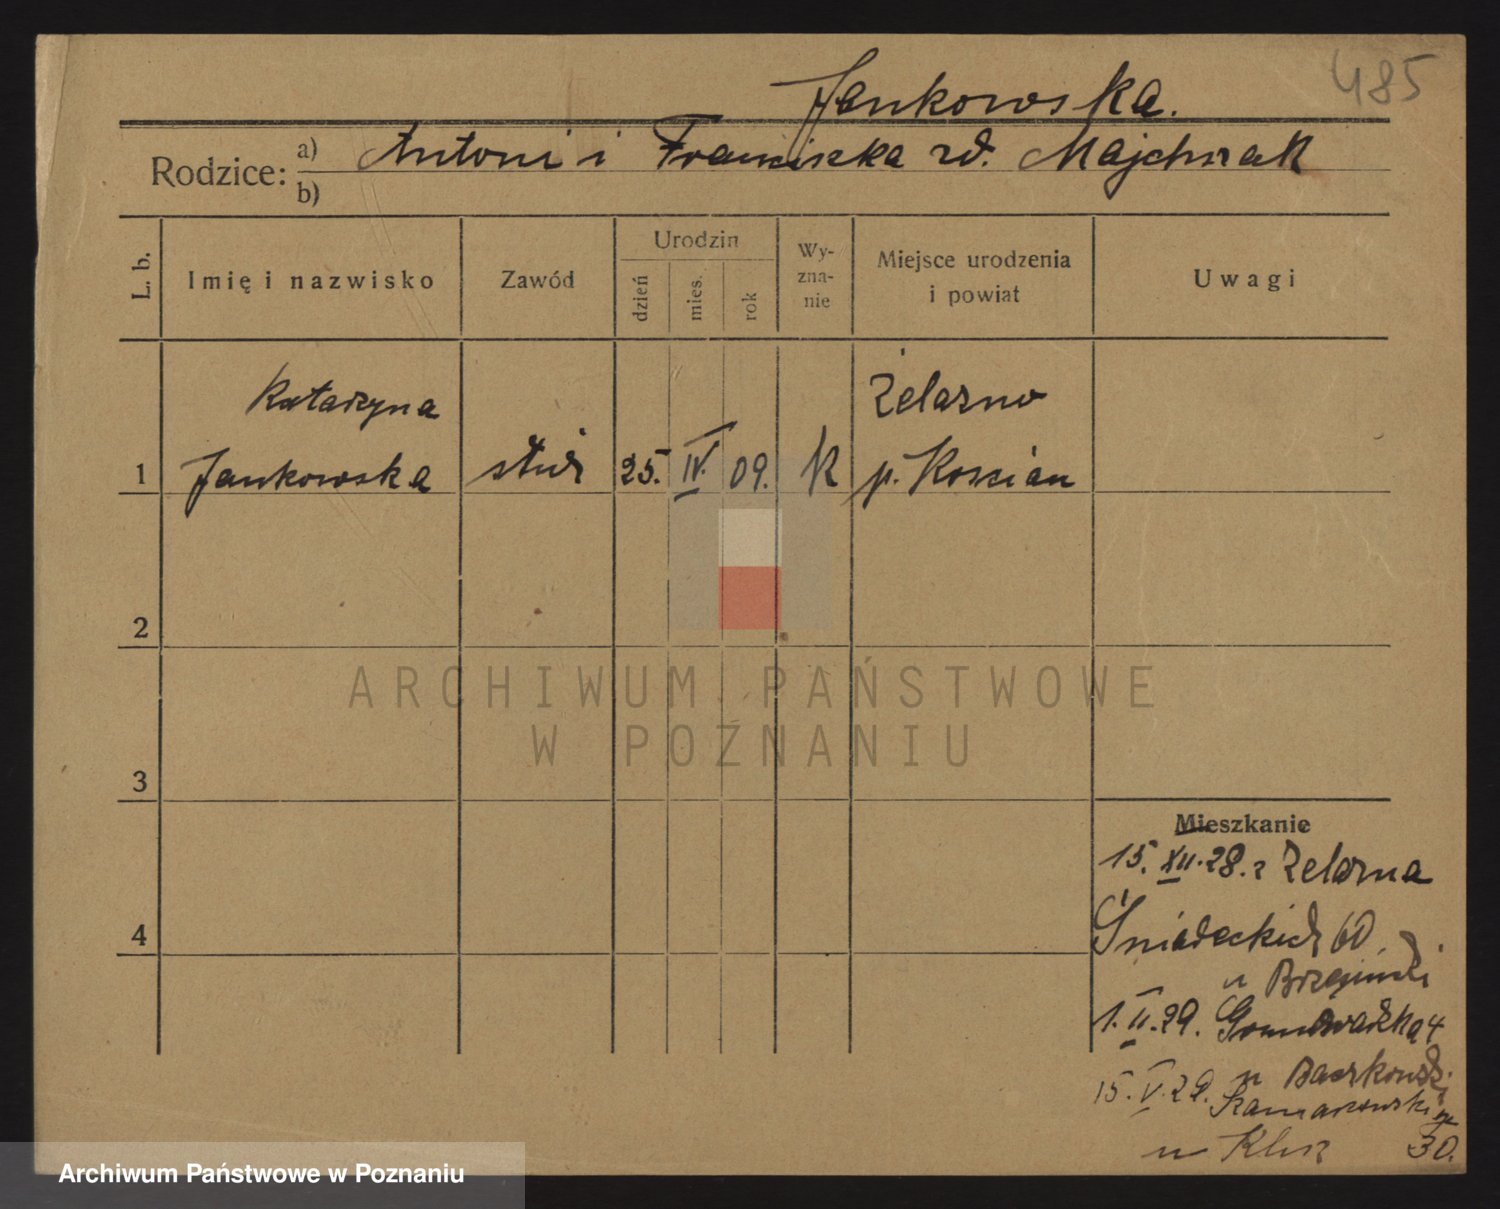 485
Jankowska.
Rodzice: a) Antoni i Franciszka zd. Majchrzak
b)
L. b.
Imię i nazwisko
Zawód
Urodzin
dzień
mies.
rok
Wy-
zna-
nie
Miejsce urodzenia
i powiat
Uwagi
Katarzyna
Żelazno
1 Jankowska służ 25. IV. 09. K p. Kościan
2
ARCHIWUM PAŃSTWOWE
W POZNANIU
3
Mieszkanie
15. XII. 28. z Żelazna
4
Śniadeckich 60
u
1. II. 29. 4
u Baczkowski
15. V. 29.
u 30.
Archiwum Państwowe w Poznaniu